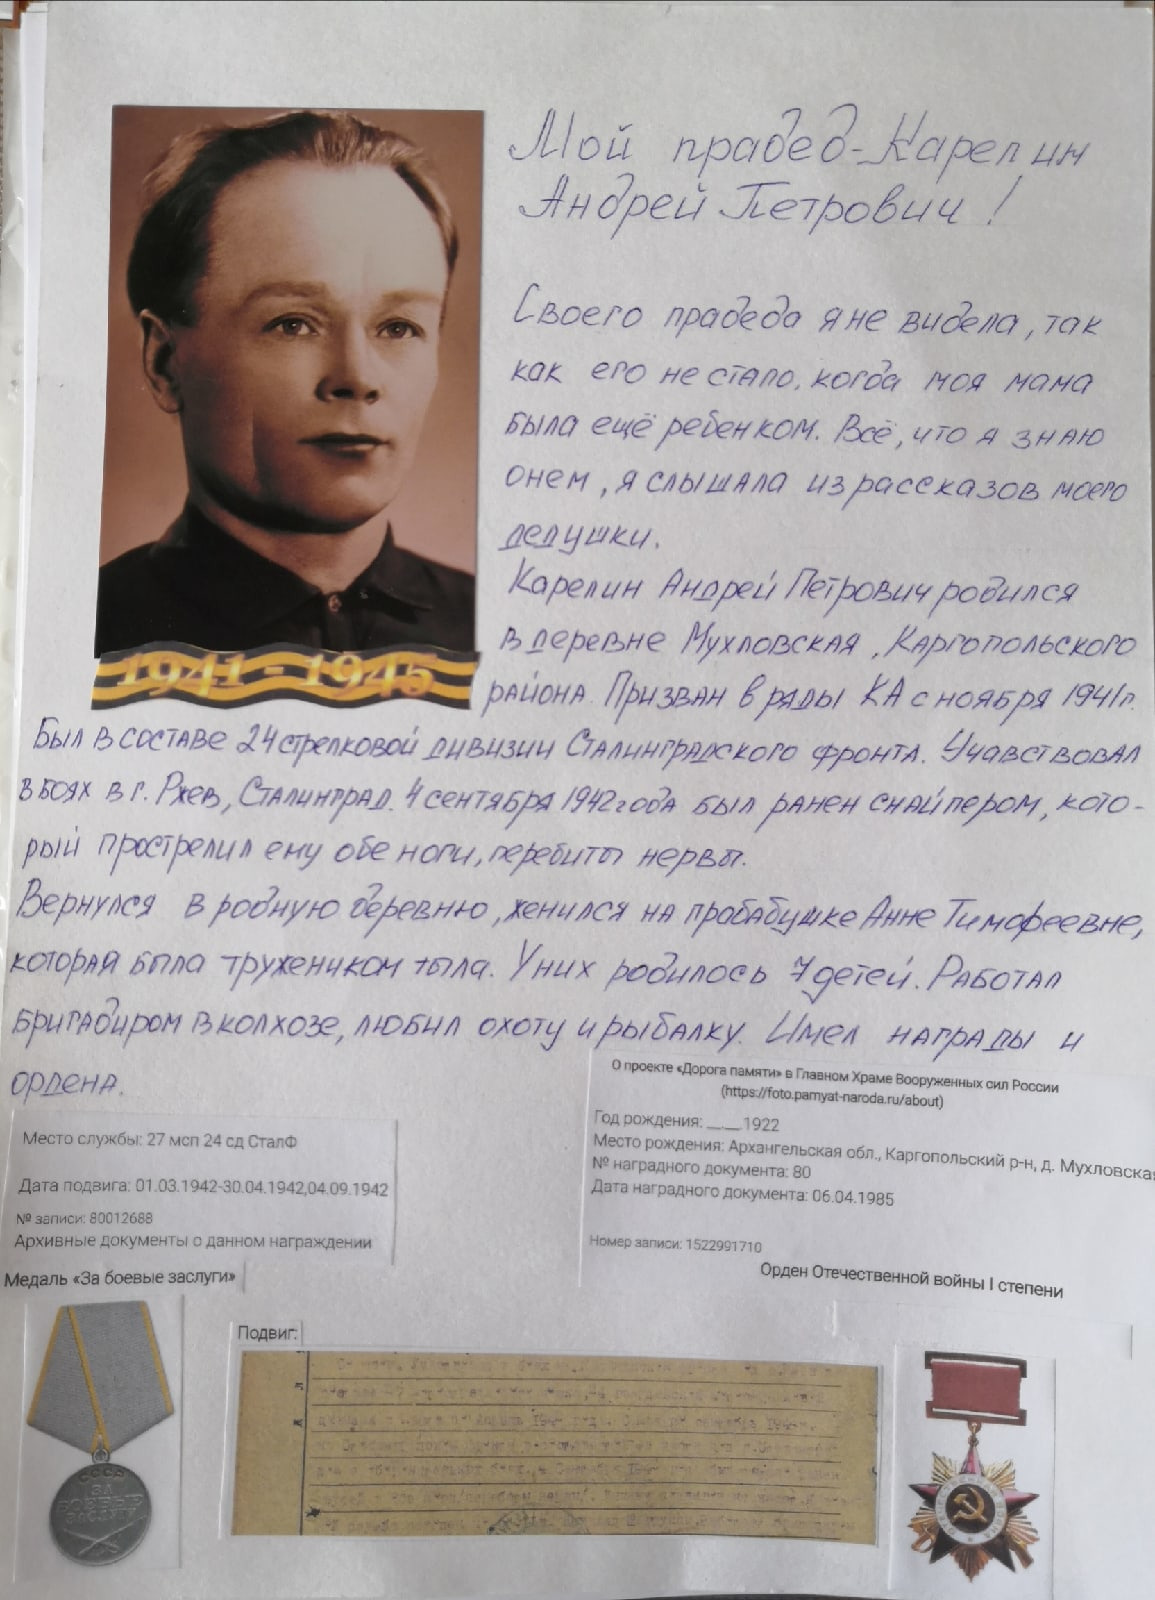 Мой прадед - Карелин
Андрей Петрович!
Своего прадеда я не видела, так
как его не стало, когда моя мама
была ещё ребенком. Всё, что я знаю
о нем, я слышала из рассказов моего
дедушки.
Карелин Андрей Петрович родился
в деревне Мухловская, Каргопольского
района. Призван в ряды КА с ноября 1941г.
1941 - 1945
Был в составе 24 стрелковой дивизии Сталинградского фронта. Учавствовал
в боях в г. Ржев, Сталинград. 4 сентября 1942 года был ранен снайпером, кото-
рый прострелил ему обе ноги, перебиты нервы.
Вернулся в родную деревню, женился на прабабушке Анне Тимофеевне,
которая была тружеником тыла. У них родилось 7 детей. Работал
бригадиром в колхозе, любил охоту и рыбалку. Имел награды и
ордена.
О проекте «Дорога памяти» в Главном Храме Вооруженных сил России
(https://foto.pamyat-naroda.ru/about)
Год рождения: __.__.1922
Место рождения: Архангельская обл., Каргопольский р-н, д. Мухловская
№ наградного документа: 80
Дата наградного документа: 06.04.1985
Номер записи: 1522991710
Орден Отечественной войны I степени
Место службы: 27 мсп 24 сд СталФ
Дата подвига: 01.03.1942-30.04.1942,04.09.1942
№ записи: 80012688
Архивные документы о данном награждении
Медаль «За боевые заслуги»
Подвиг:
СССР
ЗА
БОЕВЫЕ
ЗАСЛУГИ